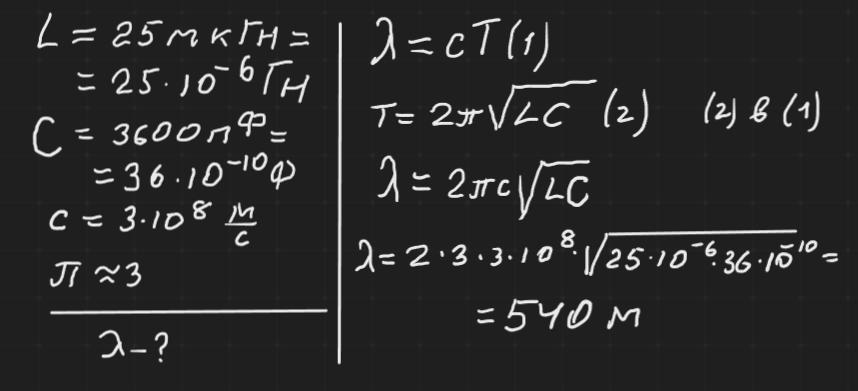 L = 25 мкГн =
= 25·10⁻⁶ Гн
C = 3600 пФ =
= 36·10⁻¹⁰ Ф
c = 3·10⁸ м/с
π ≈ 3
λ - ?
λ = cT (1)
T = 2π√LC (2) (2) в (1)
λ = 2πc√LC
λ = 2·3·3·10⁸·√25·10⁻⁶·36·10⁻¹⁰ =
= 540 м